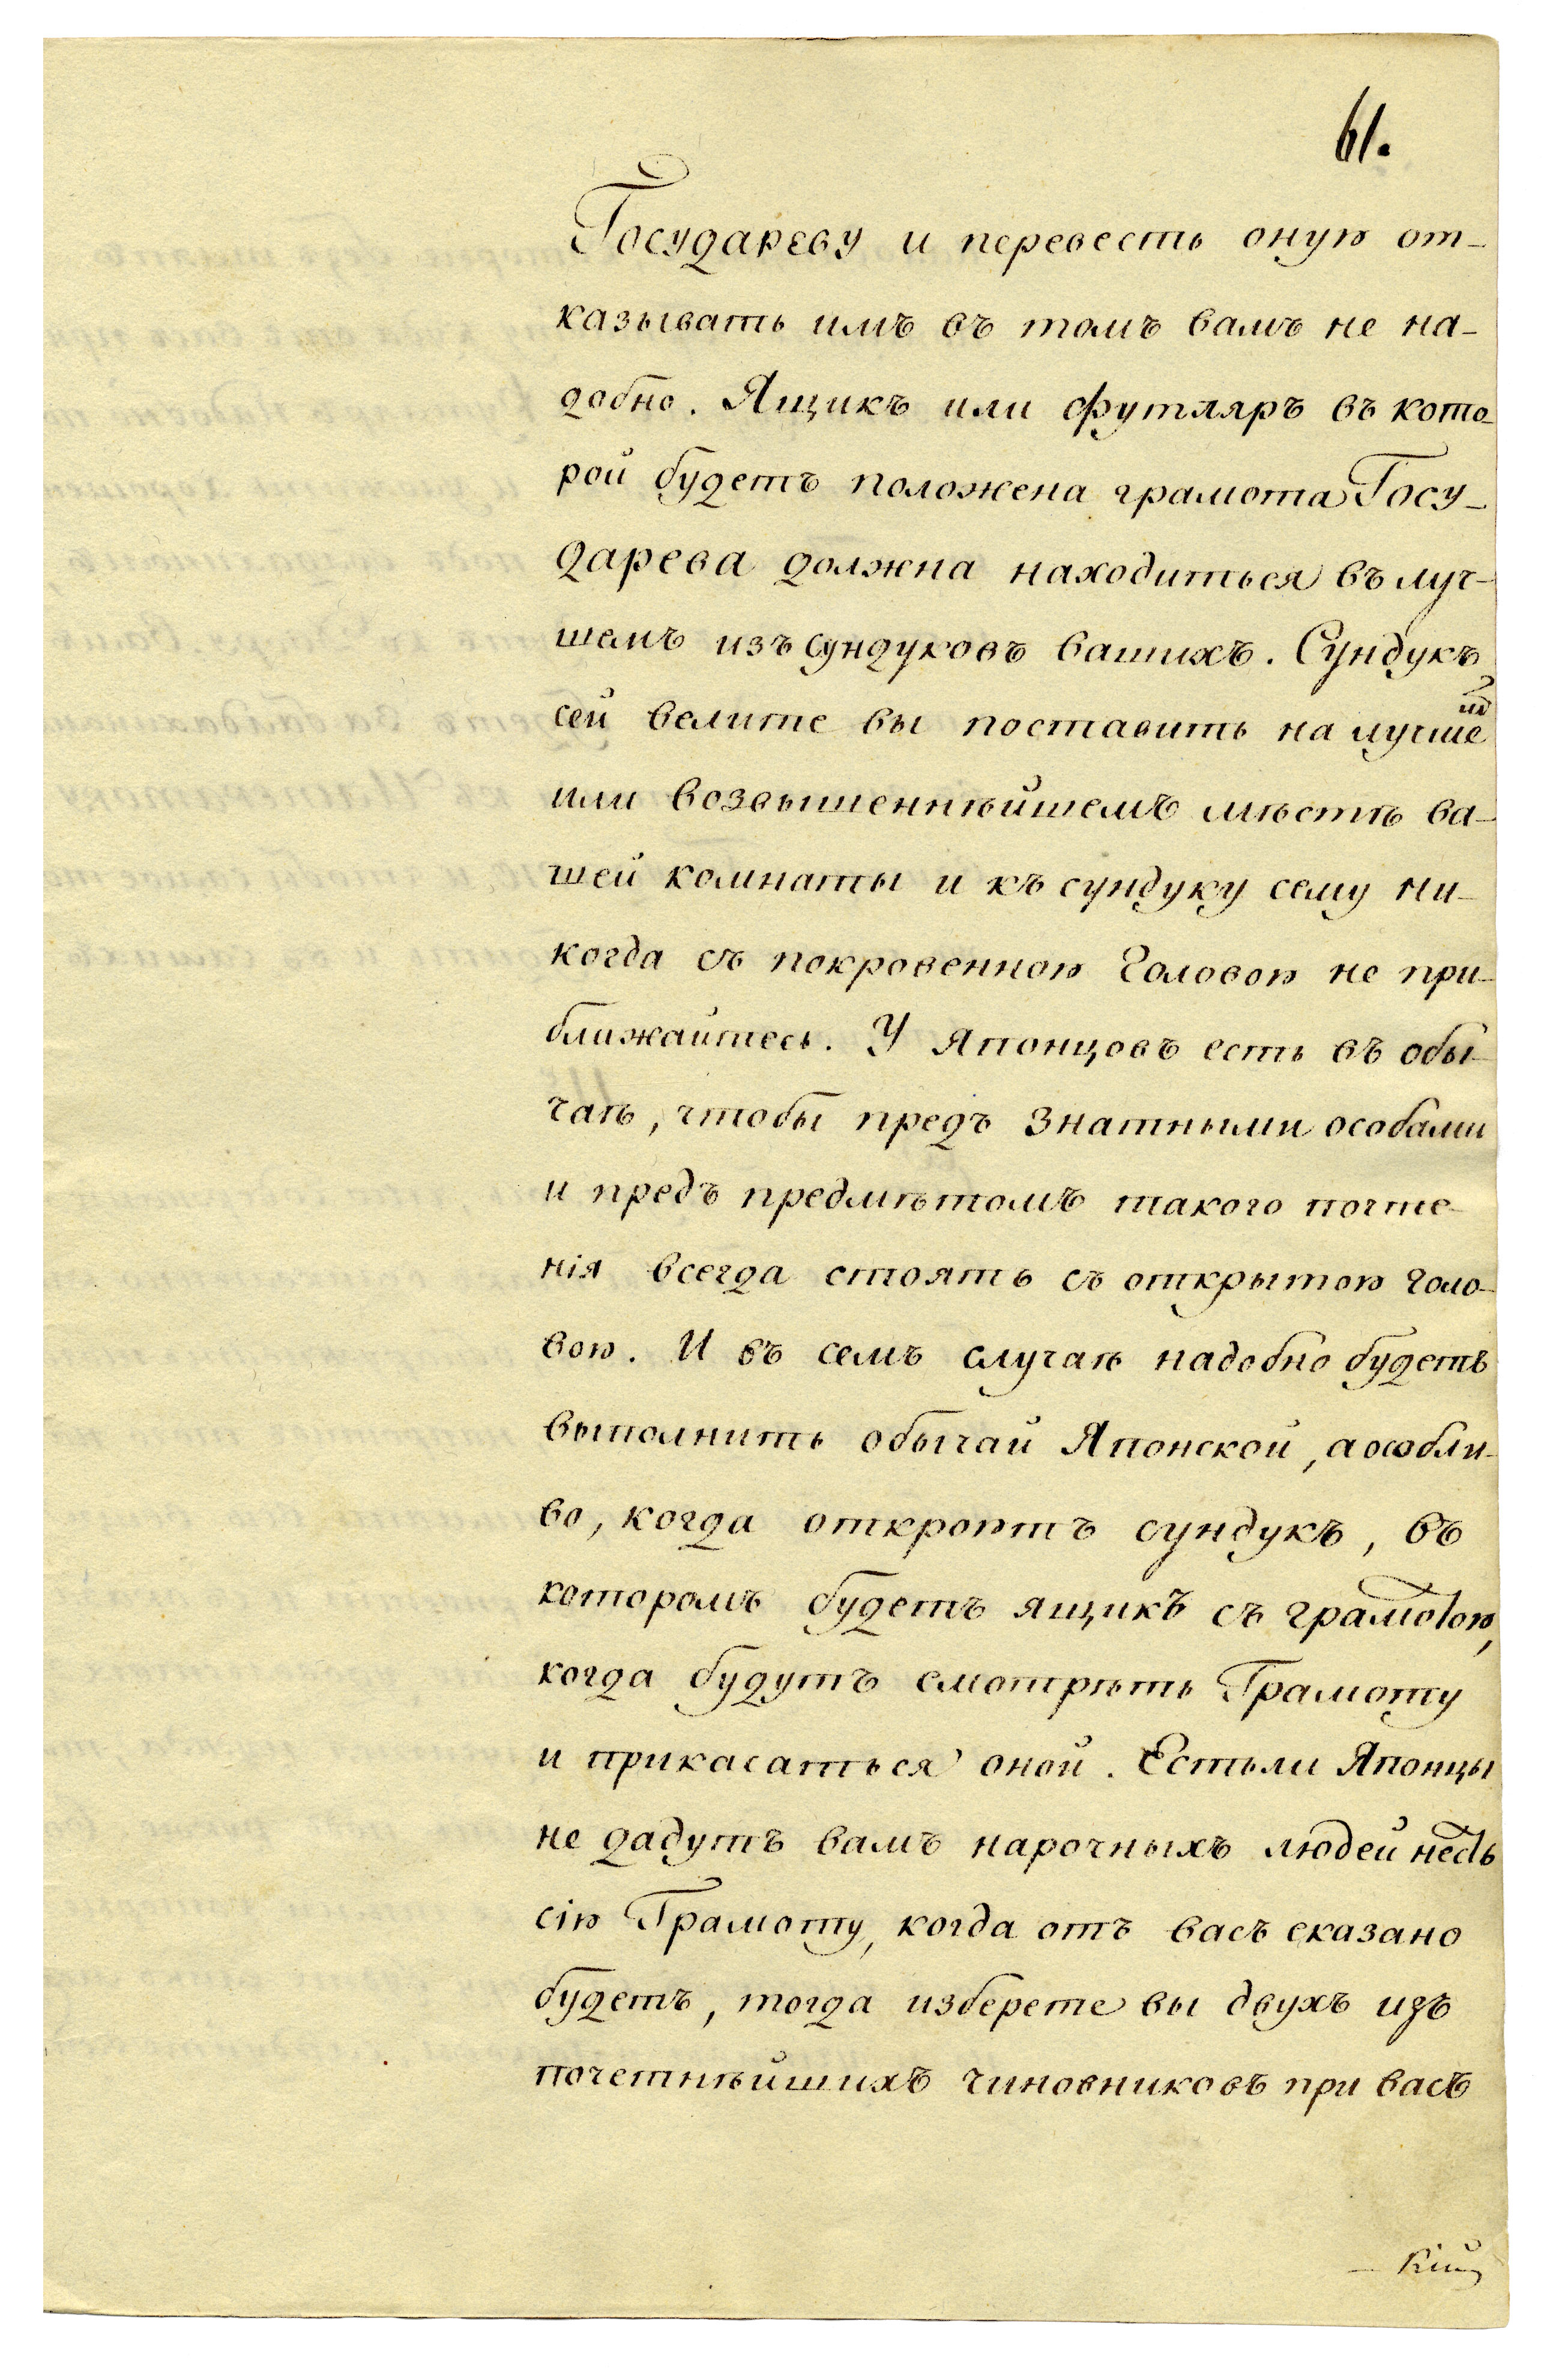 61.
Государеву и перевесть оную от-
казывать имъ въ томъ вамъ не на-
добно. Ящикъ или футляръ въ кото-
рой будетъ положена грамота Госу-
дарева должна находиться въ луч-
шемъ изъ сундуковъ вашихъ. Сундукъ
сей велите вы поставить на лучшемъ
или возвышеннѣйшемъ мѣстѣ ва-
шей комнаты и къ сундуку сему ни-
когда съ покровенною головою не при-
ближайтесь. У Японцовъ есть въ обы-
чаѣ, чтобы предъ знатными особами
и предъ предмѣтомъ такого почте-
нія всегда стоять съ открытою голо-
вою. И въ семъ случаѣ надобно будетъ
выполнить обычай Японской, а особли-
во, когда откроютъ сундукъ, въ
которомъ будетъ ящикъ съ грамотою,
когда будутъ смотрѣть Грамоту
и прикасаться оной. Естьли Японцы
не дадутъ вамъ нарочныхъ людей несть
сію Грамоту, когда отъ васъ сказано
будетъ, тогда изберете вы двухъ изъ
почетнѣйшихъ чиновниковъ при васъ